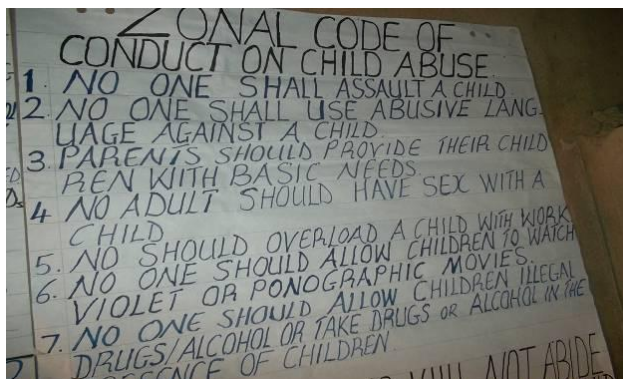 ZONAL CODE OF
CONDUCT ON CHILD ABUSE
1. NO ONE SHALL ASSAULT A CHILD
2. NO ONE SHALL USE ABUSIVE LANG-
UAGE AGAINST A CHILD.
3. PARENTS SHOULD PROVIDE THEIR CHILD
REN WITH BASIC NEEDS.
4 NO ADULT SHOULD HAVE SEX WITH A
CHILD
5. NO SHOULD OVERLOAD A CHILD WITH WORK
6. NO ONE SHOULD ALLOW CHILDREN TO WATCH
VIOLET OR PONOGRAPHIC MOVIES.
7. NO ONE SHOULD ALLOW CHILDREN ILLEGAL
DRUGS/ALCOHOL OR TAKE DRUGS OR ALCOHOL IN THE
PRESENCE OF CHILDREN.
WILL NOT ABIDE